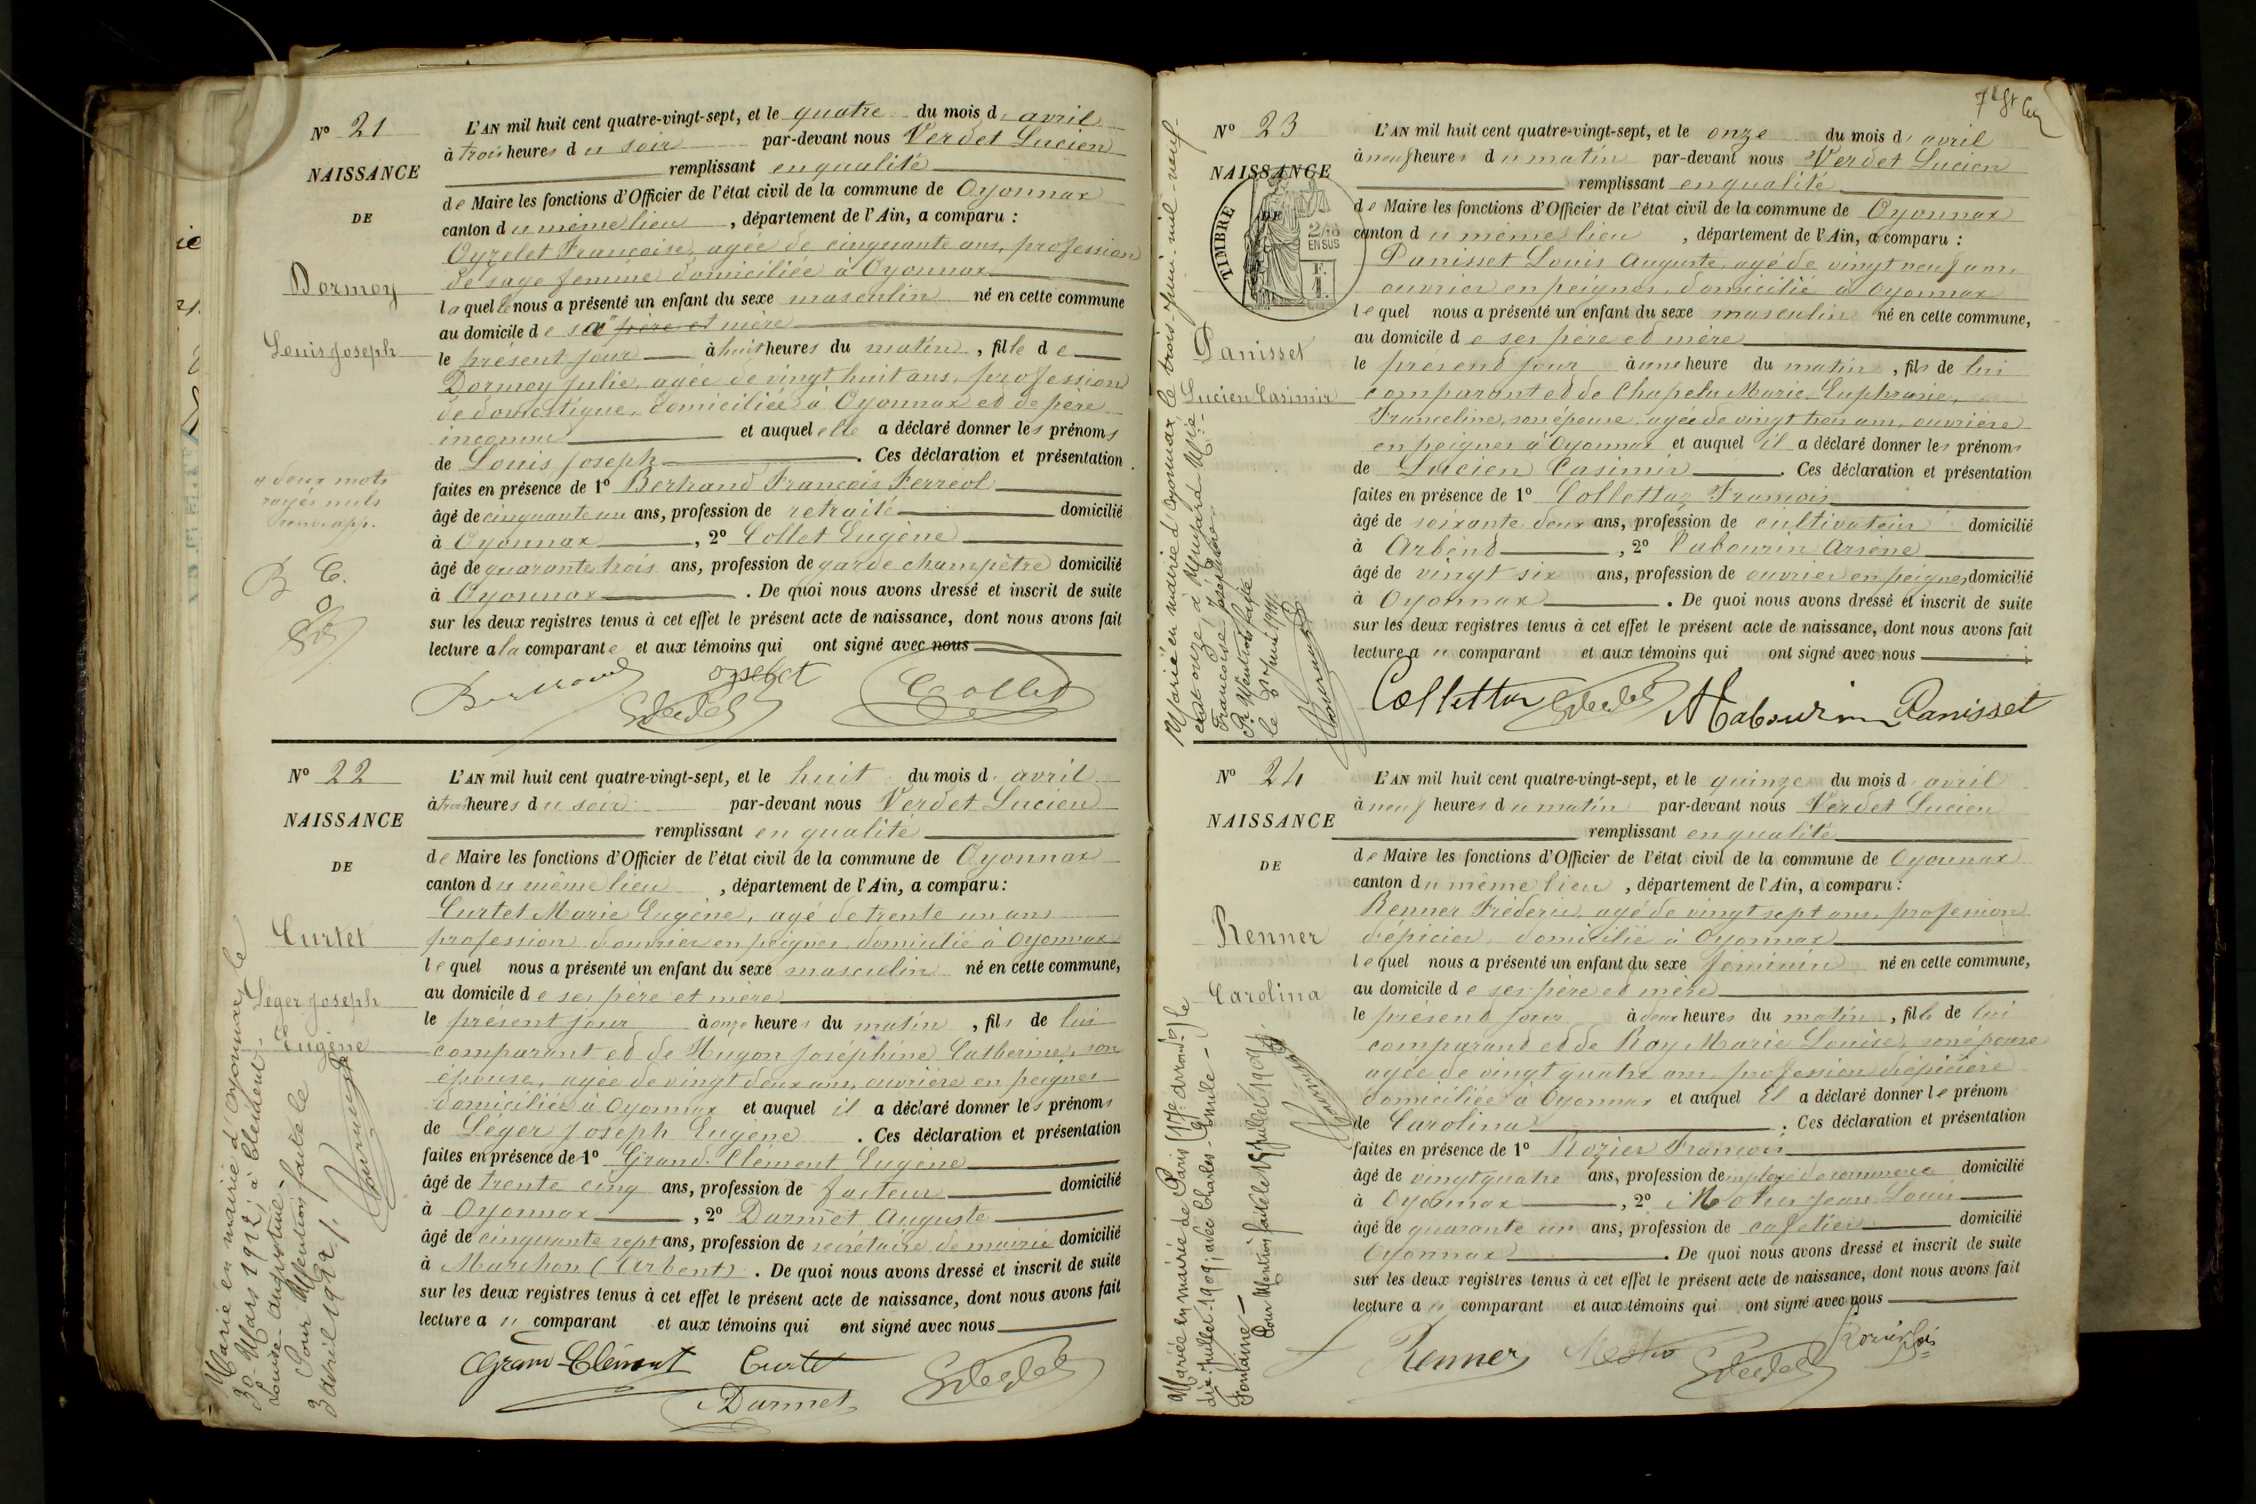 Nº 21
NAISSANCE
DE
Dormoy
Louis Joseph
L'AN mil huit cent quatre-vingt-sept, et le quatre du mois d'avril
à trois heures du soir par-devant nous Verdet Lucien
remplissant en qualité
de Maire les fonctions d'Officier de l'état civil de la commune de Oyonnax
canton du même lieu, département de l'Ain, a comparu :
Oyselet Françoise, agée de cinquante ans, profession
de sage femme domiciliée à Oyonnax
laquelle nous a présenté un enfant du sexe masculin né en cette commune
au domicile de sa père et mère
le présent jour à huit heures du matin, fille de
Dormoy Julie, agée de vingt huit ans, profession
de domestique, domiciliée à Oyonnax et de père
inconnu et auquel elle a déclaré donner les prénoms
de Louis Joseph. Ces déclaration et présentation
faites en présence de 1º Bertrand François Ferreol
âgé de cinquante un ans, profession de retraité domicilié
à Oyonnax, 2º Collet Eugène
âgé de quarante trois ans, profession de garde champêtre domicilié
à Oyonnax. De quoi nous avons dressé et inscrit de suite
sur les deux registres tenus à cet effet le présent acte de naissance, dont nous avons fait
lecture a la comparante et aux témoins qui ont signé avec nous
deux mots
rayés nuls
B C.
Bertrand Oyselet Collet
Nº 22
NAISSANCE
DE
Curtet
Léger Joseph
Eugène
L'AN mil huit cent quatre-vingt-sept, et le huit du mois d'avril
à trois heures du soir par-devant nous Verdet Lucien
remplissant en qualité
de Maire les fonctions d'Officier de l'état civil de la commune de Oyonnax
canton du même lieu, département de l'Ain, a comparu :
Curtet Marie Eugène, agé de trente un ans
profession d'ouvrier en peignes, domicilié à Oyonnax
lequel nous a présenté un enfant du sexe masculin né en cette commune,
au domicile de ses père et mère
le présent jour à onze heures du matin, fils de lui
comparant et de Hugon Joséphine Catherine, son
épouse, agée de vingt deux ans, ouvrière en peignes
domiciliée à Oyonnax et auquel il a déclaré donner les prénoms
de Léger Joseph Eugène. Ces déclaration et présentation
faites en présence de 1º Grand-Clément Eugène
âgé de trente cinq ans, profession de facteur domicilié
à Oyonnax, 2º Darmet Auguste
âgé de cinquante sept ans, profession de secrétaire de mairie domicilié
à Marchon (Arbent). De quoi nous avons dressé et inscrit de suite
sur les deux registres tenus à cet effet le présent acte de naissance, dont nous avons fait
lecture a u comparant et aux témoins qui ont signé avec nous
Grand-Clément Curtet
Darmet
Marié en mairie d'Oyonnax, le
30 Mars 1922, à Clendent
Louise-Augustine-
Pour Mention faite le
3 avril 1922
Nº 23
NAISSANCE
DE
TIMBRE
2/10
EN SUS
Panisset
Lucien Casimir
L'AN mil huit cent quatre-vingt-sept, et le onze du mois d'avril
à neuf heures du matin par-devant nous Verdet Lucien
remplissant en qualité
de Maire les fonctions d'Officier de l'état civil de la commune de Oyonnax
canton du même lieu, département de l'Ain, a comparu :
Panisset Louis Auguste, agé de vingt neuf ans,
ouvrier en peignes, domicilié à Oyonnax
lequel nous a présenté un enfant du sexe masculin né en cette commune,
au domicile de ses père et mère
le présent jour à une heure du matin, fils de lui
comparant et de Chapelu Marie Euphrasie,
Franceline, son épouse agée de vingt trois ans, ouvrière
en peignes à Oyonnax et auquel il a déclaré donner les prénoms
de Lucien Casimir. Ces déclaration et présentation
faites en présence de 1º Collettaz François
âgé de soixante deux ans, profession de cultivateur domicilié
à Arbent, 2º Tabourin Arsène
âgé de vingt six ans, profession de ouvrier en peignes domicilié
à Oyonnax. De quoi nous avons dressé et inscrit de suite
sur les deux registres tenus à cet effet le présent acte de naissance, dont nous avons fait
lecture a u comparant et aux témoins qui ont signé avec nous
Collettaz Tabourin Panisset
Marié en mairie d'Oyonnax, le trois juin mil-neuf-
cent onze, à Mugard Marie
Françoise Joséphine
Pr Mention faite
le juin 1911
Nº 24
NAISSANCE
DE
Renner
Carolina
L'AN mil huit cent quatre-vingt-sept, et le quinze du mois d'avril
à neuf heures du matin par-devant nous Verdet Lucien
remplissant en qualité
de Maire les fonctions d'Officier de l'état civil de la commune de Oyonnax
canton du même lieu, département de l'Ain, a comparu :
Renner Fréderic, agé de vingt sept ans, profession
d'épicier, domicilié à Oyonnax
lequel nous a présenté un enfant du sexe féminin né en cette commune,
au domicile de ses père et mère
le présent jour à deux heures du matin, fille de lui
comparant et de Ray Marie Louise, son épouse
agée de vingt quatre ans, profession d'épicière
domiciliée à Oyonnax et auquel il a déclaré donner le prénom
de Carolina. Ces déclaration et présentation
faites en présence de 1º Rozier François
âgé de vingt quatre ans, profession de employé de commerce domicilié
à Oyonnax, 2º Jean Louis
âgé de quarante un ans, profession de cafetier domicilié
Oyonnax. De quoi nous avons dressé et inscrit de suite
sur les deux registres tenus à cet effet le présent acte de naissance, dont nous avons fait
lecture a u comparant et aux témoins qui ont signé avec nous
Renner Rozier fois
Mariée en mairie de Paris (17e arrondt) le
dix juillet 1909, avec Charles-Emile-
Fontaine-
Pour Mention faite le 15 juillet 1909